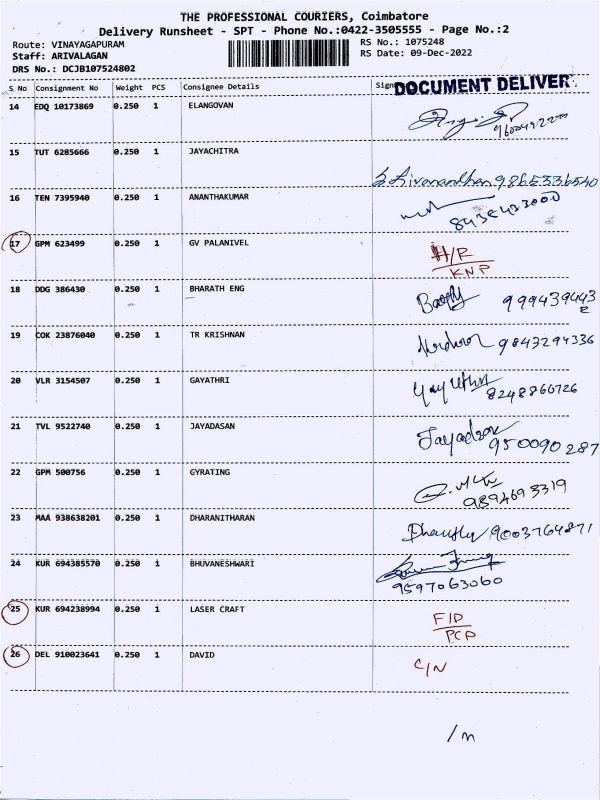 THE PROFESSIONAL COURIERS, Coimbatore
Delivery Runsheet - SPT - Phone No.:0422-3505555 - Page No.:2
Route: VINAYAGAPURAM RS No.: 1075248
Staff: ARIVALAGAN RS Date: 09-Dec-2022
DRS No.: DCJB107524802
S No Consignment No Weight PCS Consignee Details Sign DOCUMENT DELIVER
14 EDQ 10173869 0.250 1 ELANGOVAN
15 TUT 6285666 0.250 1 JAYACHITRA
S Sivananthan 9865336540
16 TEN 7395940 0.250 1 ANANTHAKUMAR
8438433000
17 GPM 623499 0.250 1 GV PALANIVEL H/R
KNP
18 DDG 386430 0.250 1 BHARATH ENG 9994394432
19 COK 23876040 0.250 1 TR KRISHNAN 9843294336
20 VLR 3154507 0.250 1 GAYATHRI Gayathri
8248866726
21 TVL 9522740 0.250 1 JAYADASAN Jayadson
950090287
22 GPM 500756 0.250 1 GYRATING
9894693319
23 MAA 938638201 0.250 1 DHARANITHARAN 9003764871
24 KUR 694385570 0.250 1 BHUVANESHWARI
9597063060
25 KUR 694238994 0.250 1 LASER CRAFT F/D
PCP
26 DEL 910023641 0.250 1 DAVID C/N